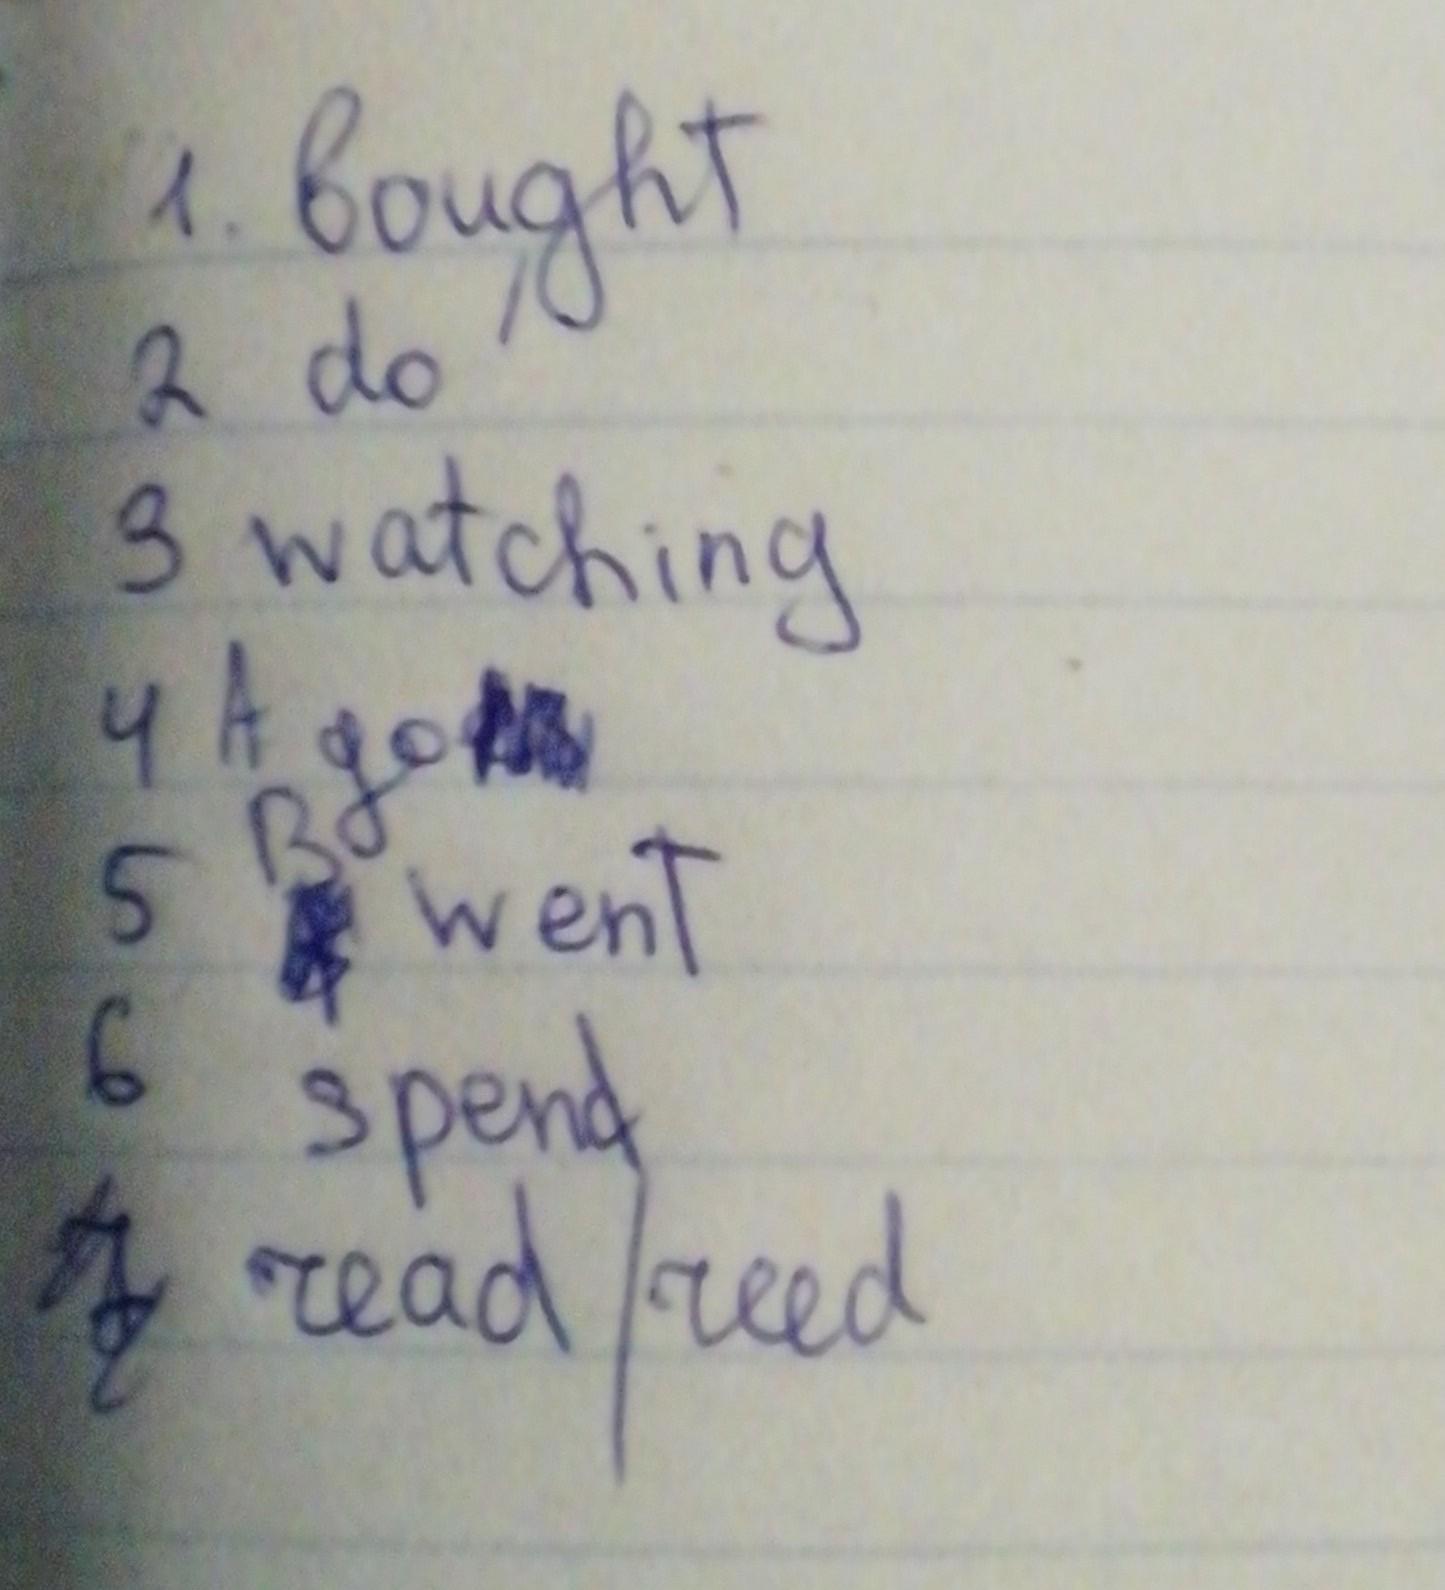 1. bought
2 do
3 watching
4 A go
B
5 went
6 spend
7 read/reed